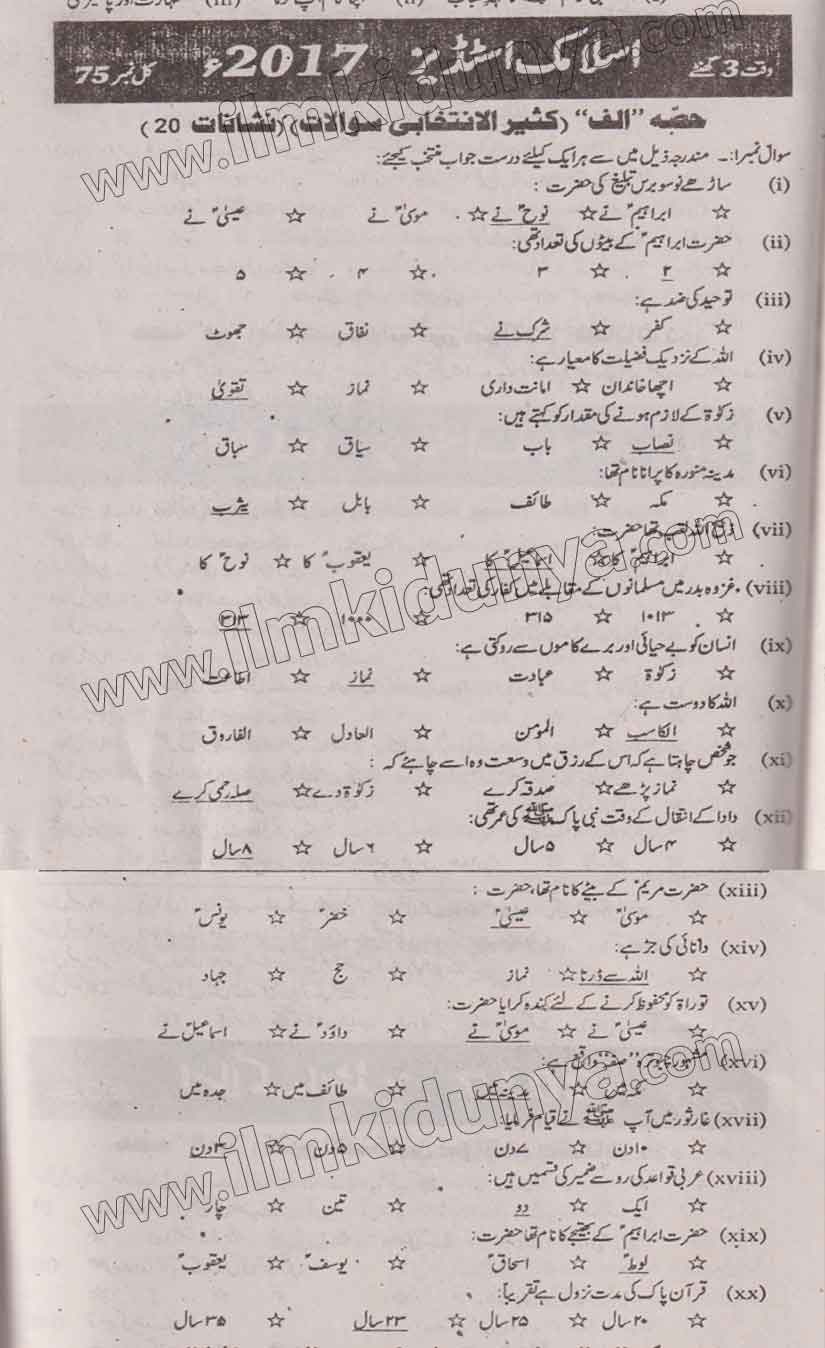 وقت 3 گھنٹے اسلامک اسٹڈیز 2017ء کل نمبر 75
حصّہ "الف" (کثیر الانتخابی سوالات) (نشانات 20)
سوال نمبر۱:۔ مندرجہ ذیل میں سے ہر ایک کیلئے درست جواب منتخب کیجئے:
(i) ساڑھے نو سو برس تبلیغ کی حضرت :
☆ ابراہیمؑ نے ☆ نوحؑ نے ☆ موسیٰؑ نے ☆ عیسیٰؑ نے
(ii) حضرت ابراہیمؑ کے بیٹوں کی تعداد تھی:
☆ ۲ ☆ ۳ ☆ ۴ ☆ ۵
(iii) توحید کی ضد ہے:
☆ کفر ☆ شرک نے ☆ نفاق ☆ جھوٹ
(iv) اللہ کے نزدیک فضیلت کا معیار ہے:
☆ اچھا خاندان ☆ امانت داری ☆ نماز ☆ تقویٰ
(v) زکوٰۃ کے لازم ہونے کی مقدار کو کہتے ہیں:
☆ نصاب ☆ باب ☆ سیاق ☆ سباق
(vi) مدینہ منورہ کا پرانا نام تھا:
☆ مکہ ☆ طائف ☆ بابل ☆ یثرب
(vii) ذبیح اللہ لقب تھا حضرت:
☆ ابراہیمؑ کا ☆ اسماعیلؑ کا ☆ یعقوبؑ کا ☆ نوحؑ کا
(viii) غزوہ بدر میں مسلمانوں کے مقابلے میں کفار کی تعداد تھی:
☆ ۱۰۱۳ ☆ ۳۱۵ ☆ ۱۰۰۰ ☆ ۳۱۳
(ix) انسان کو بے حیائی اور برے کاموں سے روکتی ہے:
☆ زکوٰۃ ☆ عبادت ☆ نماز ☆ اطاعت
(x) اللہ کا دوست ہے:
☆ الکاسب ☆ المومن ☆ العادل ☆ الفاروق
(xi) جو شخص چاہتا ہے کہ اس کے رزق میں وسعت ہو اسے چاہئے کہ :
☆ نماز پڑھے ☆ صدقہ کرے ☆ زکوٰۃ دے ☆ صلہ رحمی کرے
(xii) دادا کے انتقال کے وقت نبی پاک ﷺ کی عمر تھی:
☆ ۴ سال ☆ ۵ سال ☆ ۶ سال ☆ ۸ سال
(xiii) حضرت مریمؑ کے بیٹے کا نام تھا، حضرت :
☆ موسیٰؑ ☆ عیسیٰؑ ☆ خضرؑ ☆ یونسؑ
(xiv) دانائی کی جڑ ہے:
☆ اللہ سے ڈرنا ☆ نماز ☆ حج ☆ جہاد
(xv) توراۃ کو محفوظ کرنے کے لئے کندہ کرایا حضرت:
☆ عیسیٰؑ نے ☆ موسیٰؑ نے ☆ داؤدؑ نے ☆ اسماعیلؑ نے
(xvi) مشہور چبوترہ "صفہ" واقع ہے:
☆ مکہ میں ☆ مدینہ میں ☆ طائف میں ☆ جدہ میں
(xvii) غار ثور میں آپ ﷺ نے قیام فرمایا:
☆ ۱۰ دن ☆ ۷ دن ☆ ۵ دن ☆ ۳ دن
(xviii) عربی قواعد کی رو سے ضمیر کی قسمیں ہیں:
☆ ایک ☆ دو ☆ تین ☆ چار
(xix) حضرت ابراہیمؑ کے بھتیجے کا نام تھا حضرت:
☆ لوطؑ ☆ اسحاقؑ ☆ یوسفؑ ☆ یعقوبؑ
(xx) قرآن پاک کی مدت نزول ہے تقریباً:
☆ ۲۰ سال ☆ ۲۵ سال ☆ ۲۳ سال ☆ ۳۵ سال
www.ilmkidunya.com
www.ilmkidunya.com
www.ilmkidunya.com